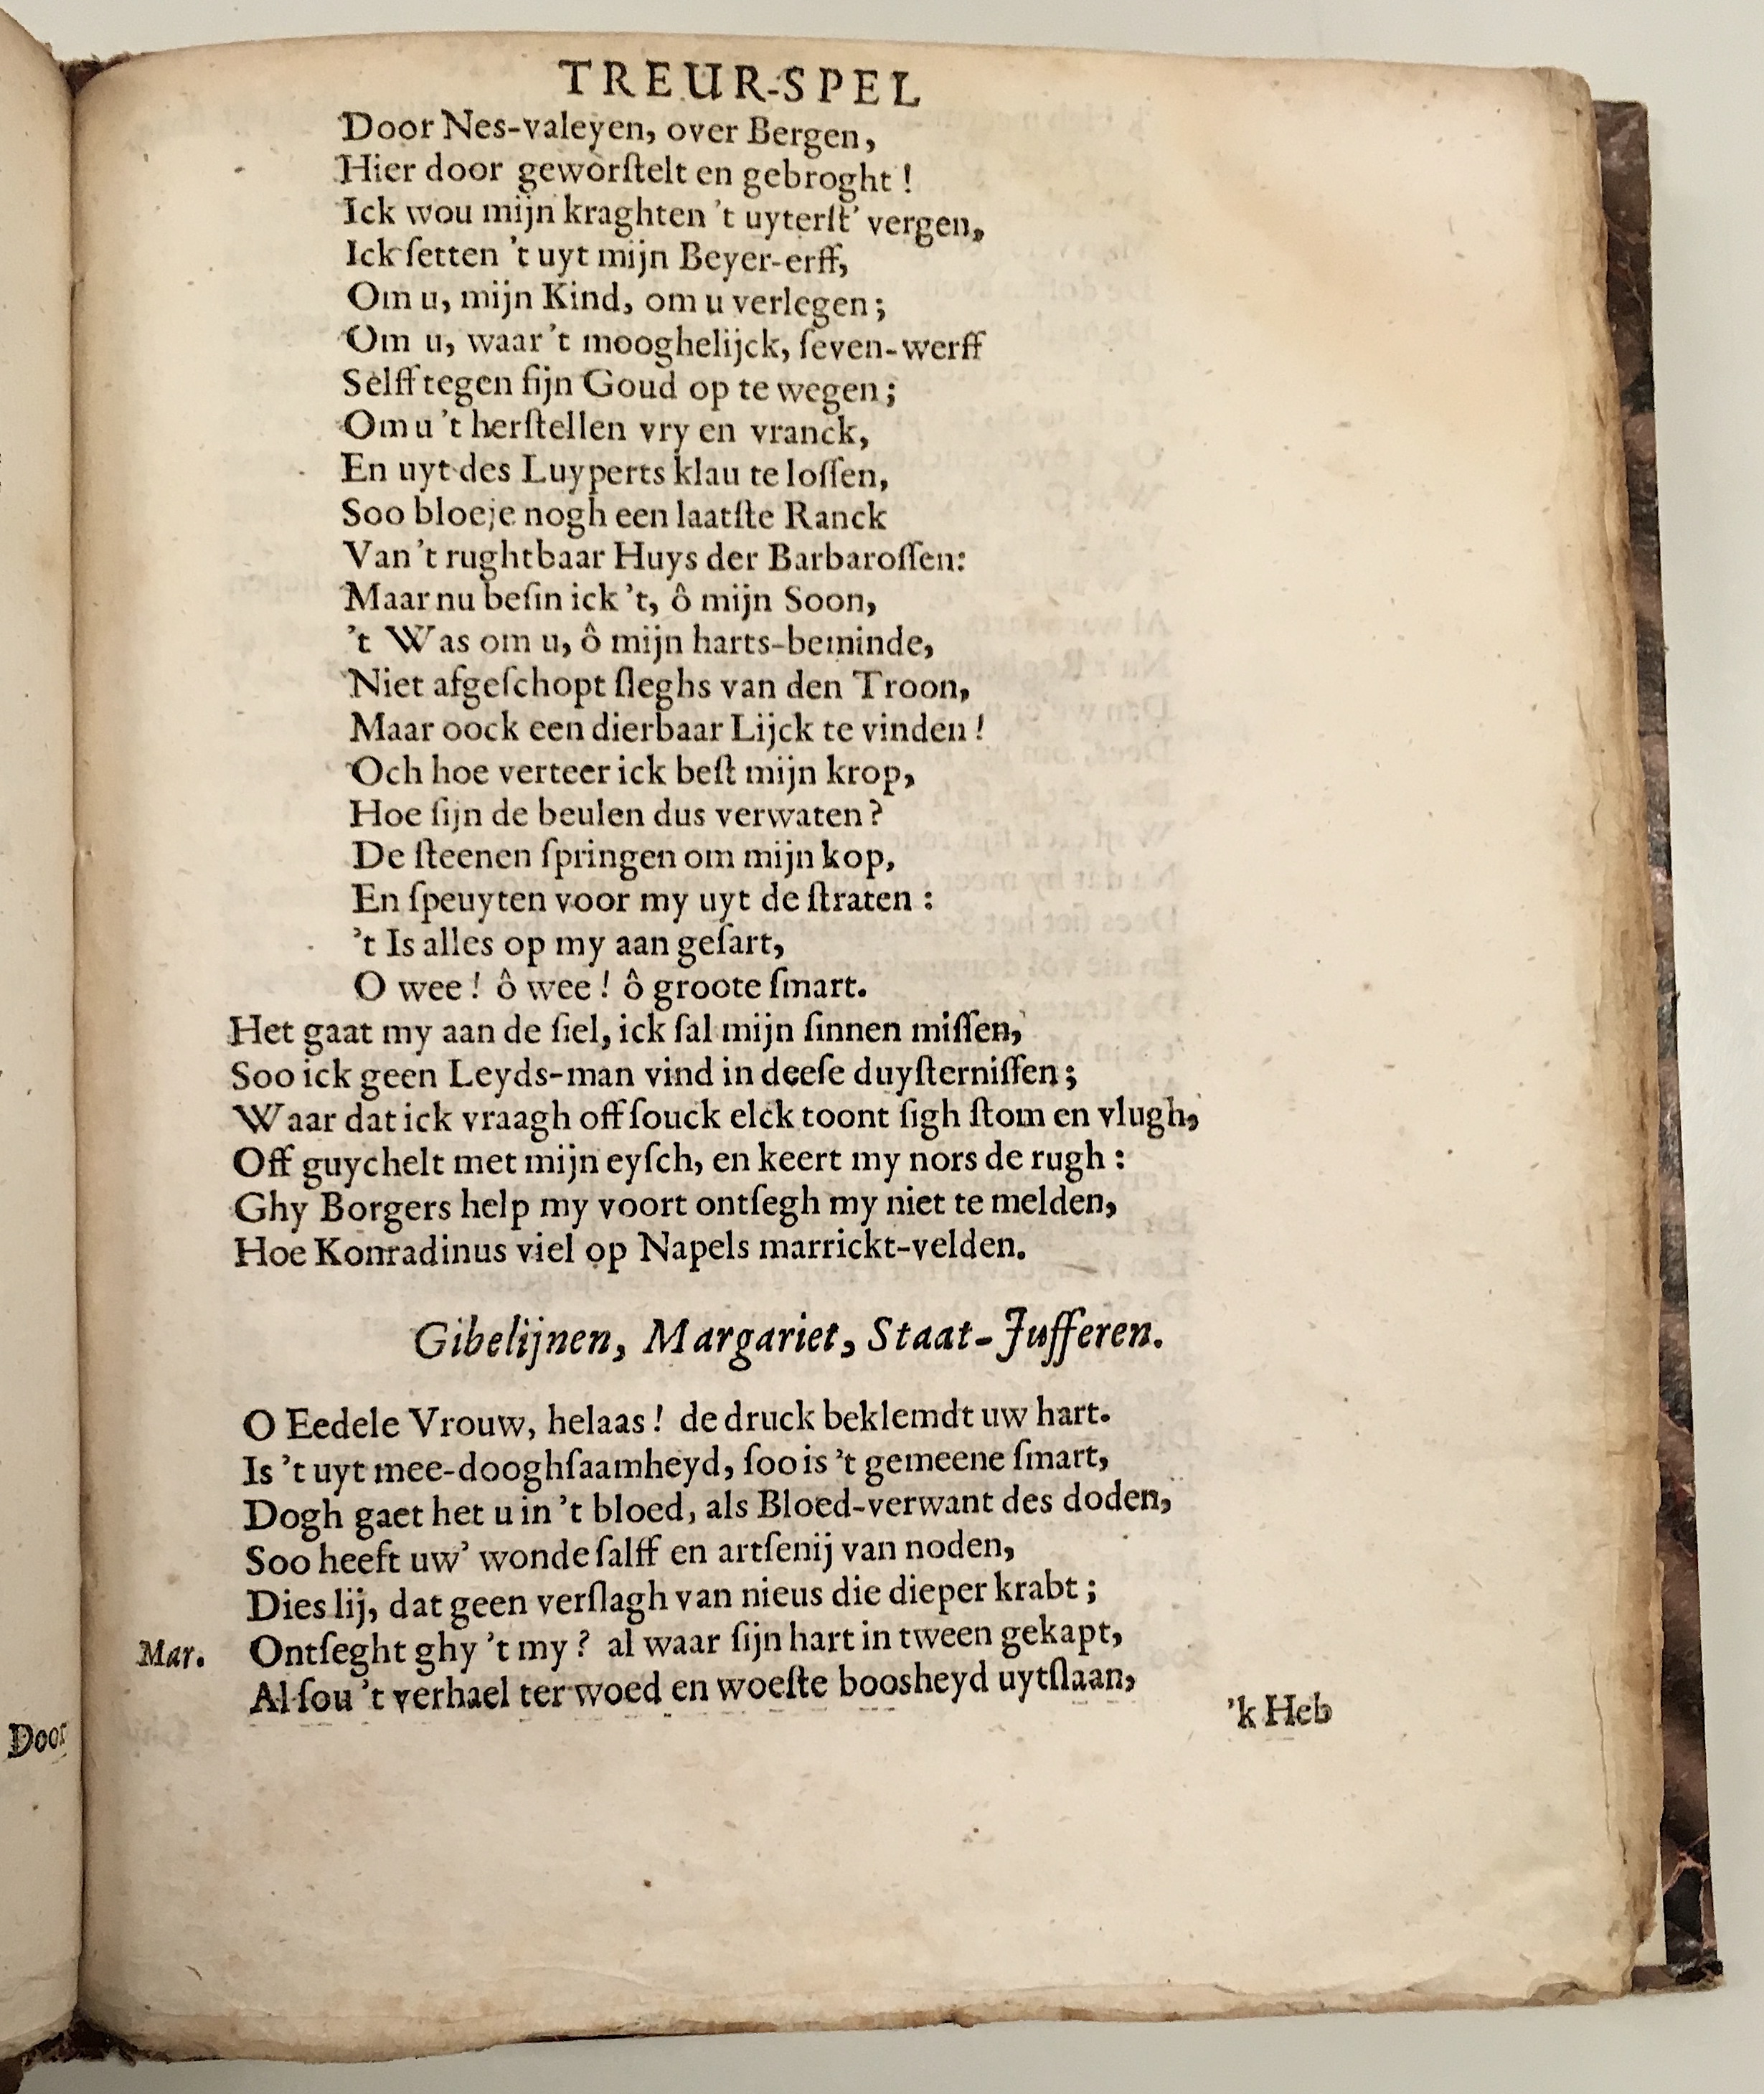 TREUR-SPEL
Door Nes-valeyen, over Bergen,
Hier door geworſtelt en gebroght !
Ick wou mijn kraghten 't uyterſt' vergen,
Ick ſetten 't uyt mijn Beyer-erff,
Om u, mijn Kind, om u verlegen;
Om u, waar 't mooghelijck, ſeven-werff
Selff tegen ſijn Goud op te wegen;
Om u 't herſtellen vry en vranck,
En uyt des Luyperts klau te loſſen,
Soo bloeje nogh een laatſte Ranck
Van 't rughtbaar Huys der Barbaroſſen:
Maar nu beſin ick 't, ô mijn Soon,
't Was om u, ô mijn harts-beminde,
Niet afgeſchopt ſleghs van den Troon,
Maar oock een dierbaar Lijck te vinden !
Och hoe verteer ick beſt mijn krop,
Hoe ſijn de beulen dus verwaten ?
De ſteenen ſpringen om mijn kop,
En ſpeuyten voor my uyt de ſtraten :
't Is alles op my aan geſart,
O wee ! ô wee ! ô groote ſmart.
Het gaat my aan de ſiel, ick ſal mijn ſinnen miſſen,
Soo ick geen Leyds-man vind in deeſe duyſterniſſen;
Waar dat ick vraagh off ſouck elck toont ſigh ſtom en vlugh,
Off guychelt met mijn eyſch, en keert my nors de rugh :
Ghy Borgers help my voort ontſegh my niet te melden,
Hoe Konradinus viel op Napels marrickt-velden.
Gibelijnen, Margariet, Staat-Jufferen.
O Eedele Vrouw, helaas ! de druck beklemdt uw hart.
Is 't uyt mee-dooghſaamheyd, ſoo is 't gemeene ſmart,
Dogh gaet het u in 't bloed, als Bloed-verwant des doden,
Soo heeft uw' wonde ſalff en artſenij van noden,
Dies lij, dat geen verſlagh van nieus die dieper krabt ;
Mar. Ontſeght ghy 't my ? al waar ſijn hart in tween gekapt,
Al ſou 't verhael ter woed en woeſte boosheyd uytſlaan,
'k Heb
Door